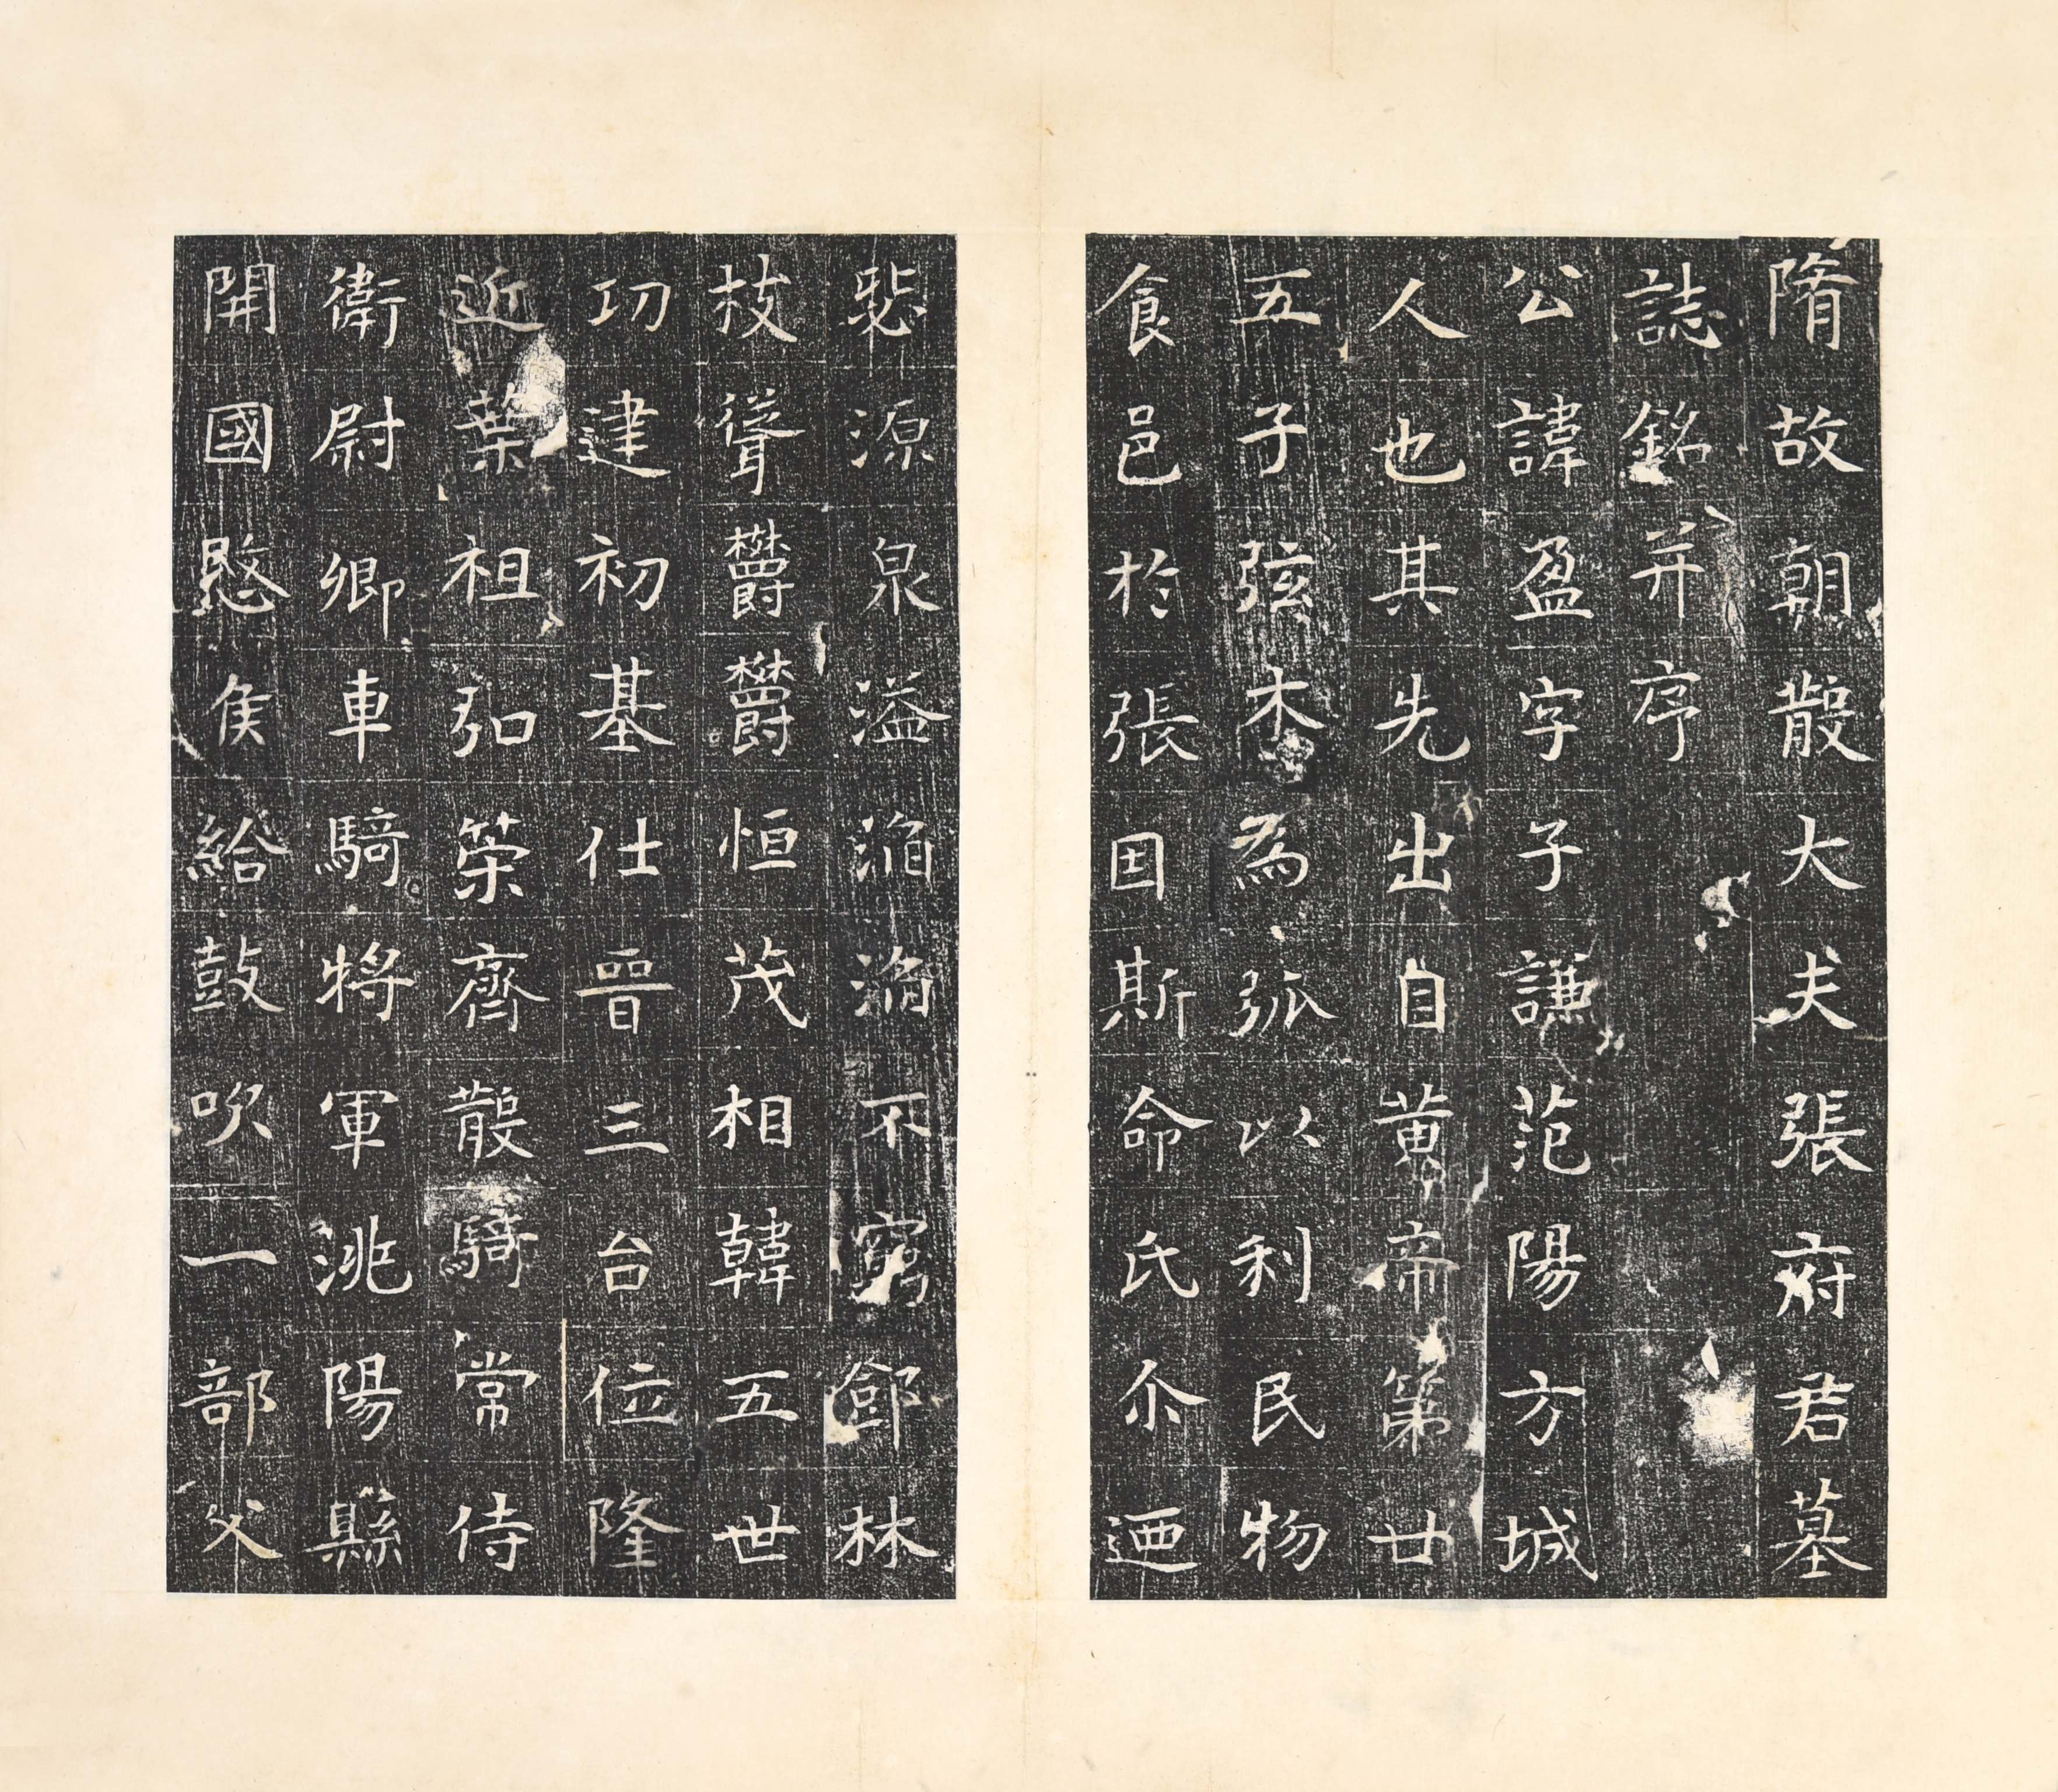 隋故朝散大夫張府君墓
誌銘并序
公諱盈字子謙范陽方城
人也其先出自黃帝第廿
五子弦木為弧以利民物
食邑於張因斯命氏尒迺
悲源泉溢滔滔不窮鄧林
枝聳欝欝恒茂相韓五世
功建初基仕晉三台位隆
近葉祖弘策齊散騎常侍
衛尉卿車騎將軍洮陽縣
開國愍侯給鼓吹一部父